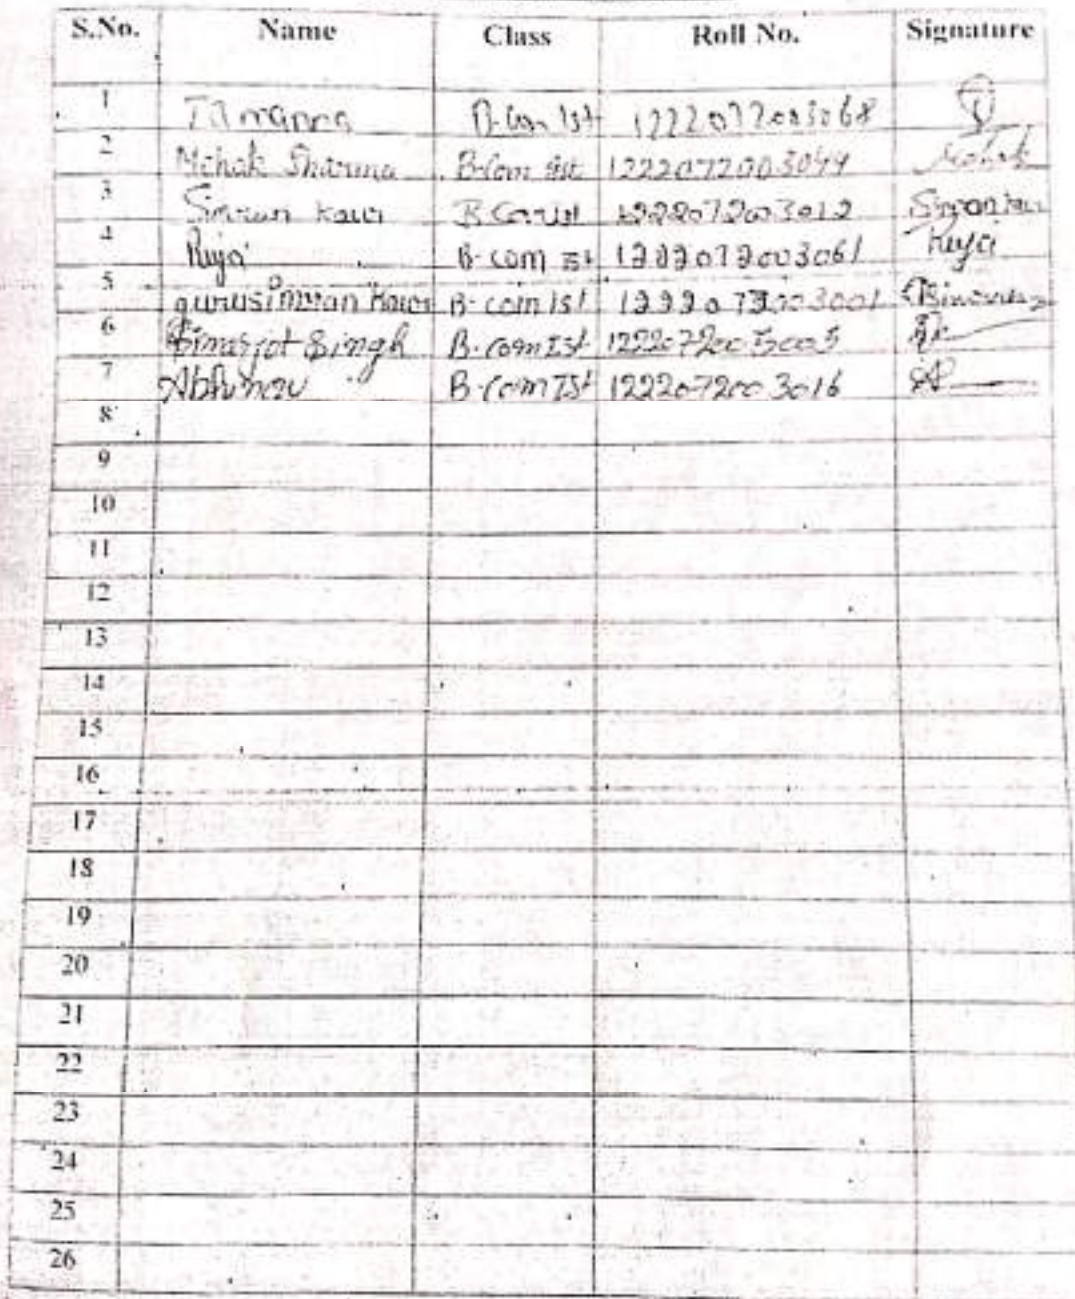 S.No. Name Class Roll No. Signature
1 Tamanna B.Com 1st 1222072003068
2 Mehak Sharma B.Com 1222072003049 Mehak
3 Simran Kaur B.Com 1st 1222072003012
4 B.com Ist 1222072003061
5 gurusimran Kaur B-com Ist 1222072003001
6 Simarjot Singh B.Com Ist 1222072003005
7 Abhinav B.Com Ist 1222072003016
8
9
10
11
12
13
14
15
16
17
18
19
20
21
22
23
24
25
26